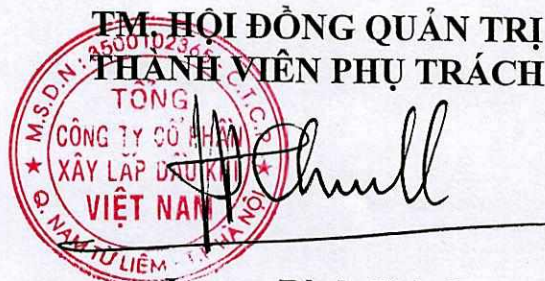 TM. HỘI ĐỒNG QUẢN TRỊ
THÀNH VIÊN PHỤ TRÁCH
M.S.D.N: 3500102365 - C.T.C.P
TỔNG
CÔNG TY CỔ PHẦN
XÂY LẮP DẦU KHÍ
VIỆT NAM
Q. NAM TỪ LIÊM - T.P HÀ NỘI